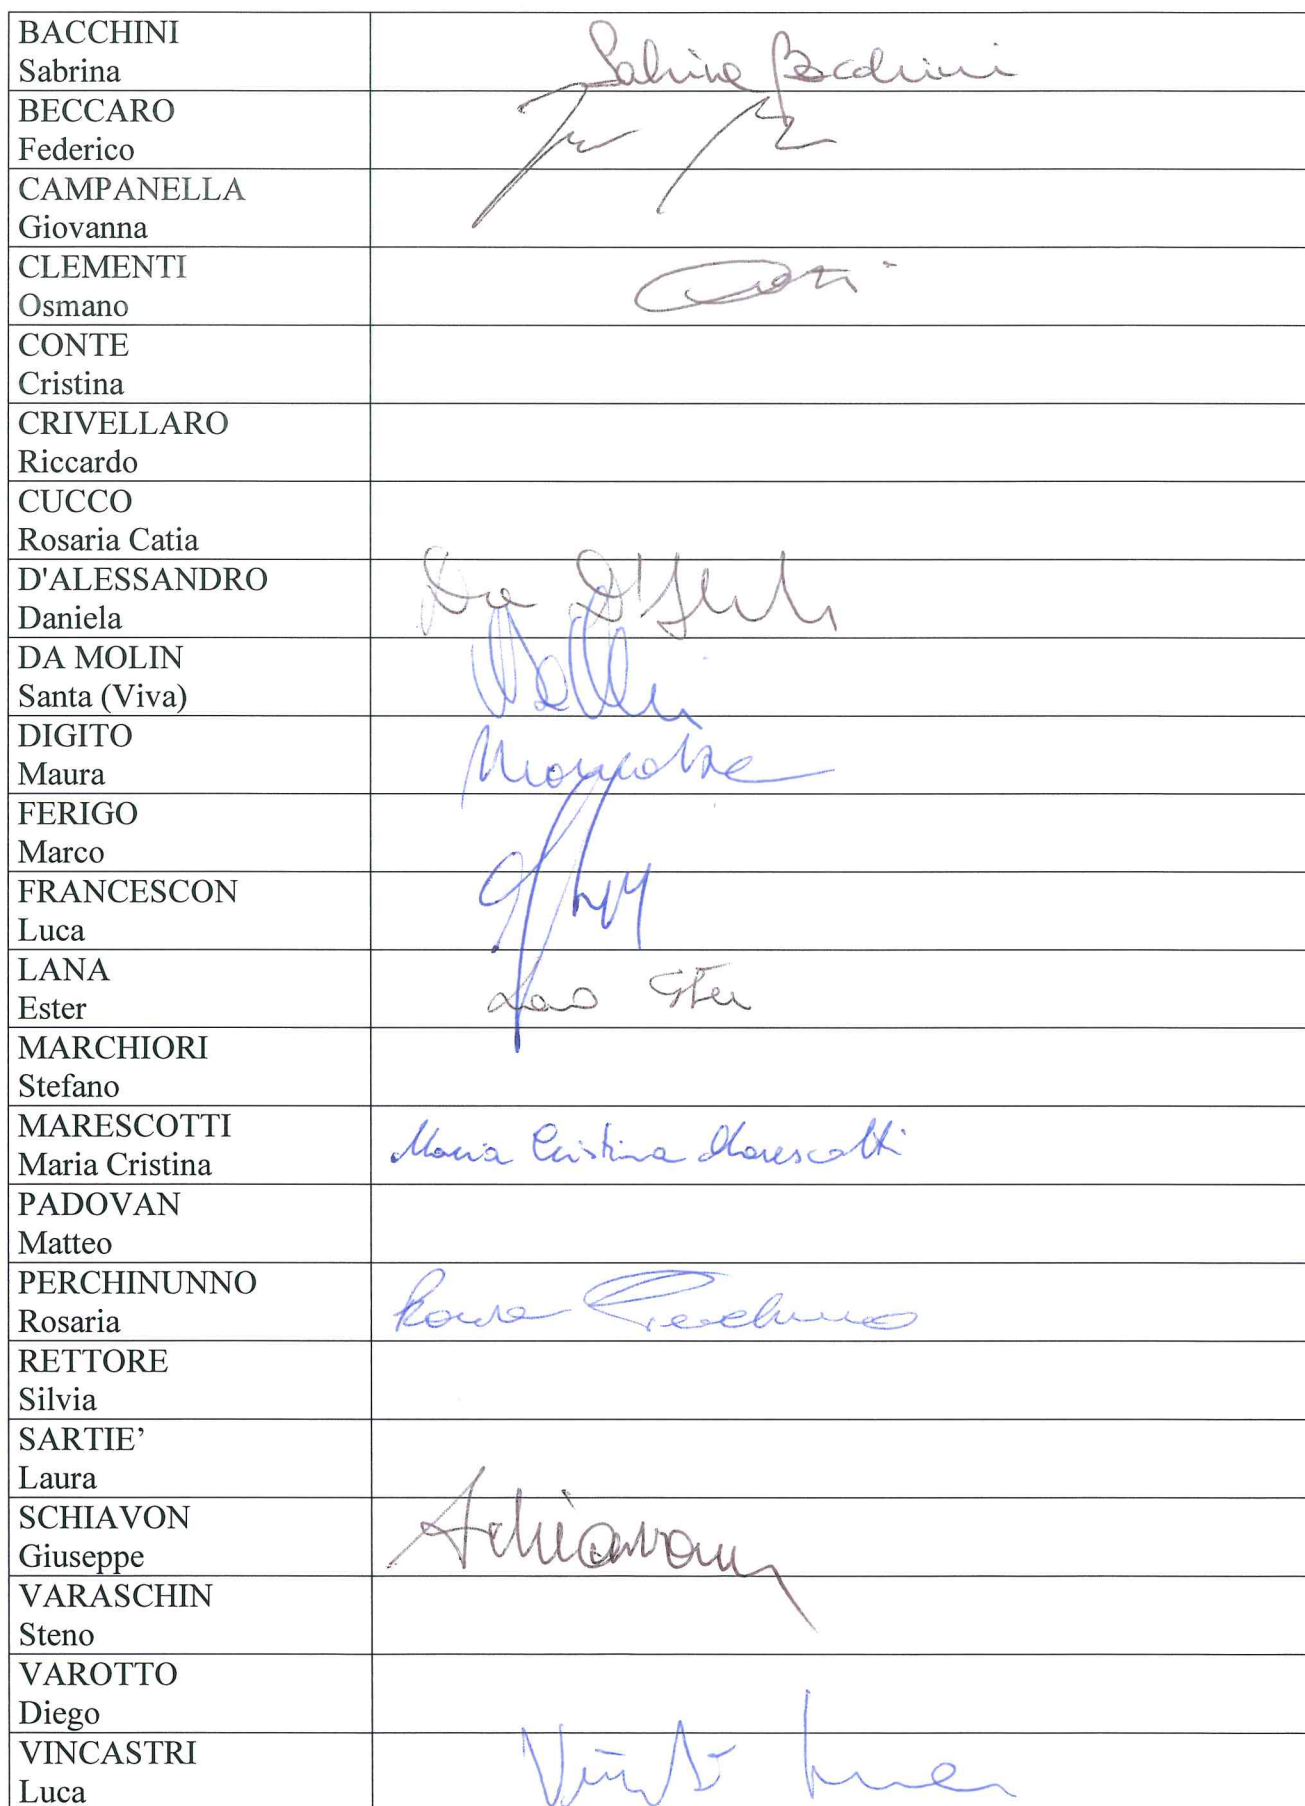 BACCHINI
Sabrina
Sabrina Bacchini
BECCARO
Federico
CAMPANELLA
Giovanna
CLEMENTI
Osmano
CONTE
Cristina
CRIVELLARO
Riccardo
CUCCO
Rosaria Catia
D'ALESSANDRO
Daniela
DA MOLIN
Santa (Viva)
DIGITO
Maura
FERIGO
Marco
FRANCESCON
Luca
LANA
Ester
Lana Ester
MARCHIORI
Stefano
MARESCOTTI
Maria Cristina
Maria Cristina Marescotti
PADOVAN
Matteo
PERCHINUNNO
Rosaria
RETTORE
Silvia
SARTIE’
Laura
SCHIAVON
Giuseppe
Schiavon
VARASCHIN
Steno
VAROTTO
Diego
VINCASTRI
Luca